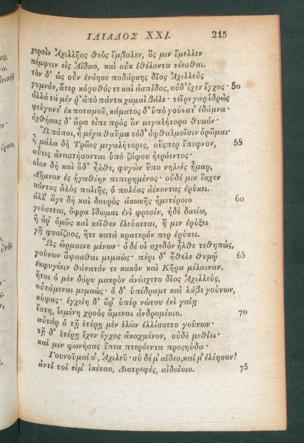 ΙΛΙΑΔΟΣ XXI. 215
χερσὶν Ἀχιλλῆος θεὸς ἔμβαλεν, ὅς μιν ἔμελλεν
πέμψειν εἰς Ἀΐδαο, καὶ οὐκ ἐθέλοντα νέεσθαι.
τὸν δ᾽ ὡς οὖν ἐνόησε ποδάρκης δῖος Ἀχιλλεὺς
γυμνὸν, ἄτερ κόρυθός τε καὶ ἀσπίδος, οὐδ᾽ ἔχεν ἔγχος· 50
ἀλλὰ τὰ μέν ῥ᾽ ἀπὸ πάντα χαμαὶ βάλε· τεῖρε γὰρ ἱδρὼς
φεύγοντ᾽ ἐκ ποταμοῦ, κάματος δ᾽ ὑπὸ γούνατ᾽ ἐδάμνα·
ὀχθήσας δ᾽ ἄρα εἶπε πρὸς ὃν μεγαλήτορα θυμόν·
Ὢ πόποι, ἦ μέγα θαῦμα τόδ᾽ ὀφθαλμοῖσιν ὁρῶμαι·
ἦ μάλα δὴ Τρῶες μεγαλήτορες, οὕσπερ ἔπεφνον, 55
αὖτις ἀναστήσονται ὑπὸ ζόφου ἠερόεντος·
οἷον δὴ καὶ ὅδ᾽ ἦλθε, φυγὼν ὕπο νηλεὲς ἦμαρ,
Λῆμνον ἐς ἠγαθέην πεπερημένος· οὐδέ μιν ἔσχεν
πόντος ἁλὸς πολιῆς, ὃ πολέας ἀέκοντας ἐρύκει.
ἀλλ᾽ ἄγε δὴ καὶ δουρὸς ἀκωκῆς ἡμετέροιο 60
γεύσεται, ὄφρα ἴδωμαι ἐνὶ φρεσὶν, ἠδὲ δαείω,
ἢ ἄρ᾽ ὁμῶς καὶ κεῖθεν ἐλεύσεται, ἤ μιν ἐρύξει
γῆ φυσίζοος, ἥτε κατὰ κρατερόν περ ἐρύκει.
Ὣς ὥρμαινε μένων· ὁ δέ οἱ σχεδὸν ἦλθε τεθηπὼς,
γούνων ἅψασθαι μεμαώς· πέρι δ᾽ ἤθελε θυμῷ 65
ἐκφυγέειν θάνατόν τε κακὸν καὶ Κῆρα μέλαιναν.
ἤτοι ὁ μὲν δόρυ μακρὸν ἀνέσχετο δῖος Ἀχιλλεὺς,
οὐτάμεναι μεμαώς· ὁ δ᾽ ὑπέδραμε καὶ λάβε γούνων,
κύψας· ἐγχείη δ᾽ ἄρ᾽ ὑπὲρ νώτου ἐνὶ γαίῃ
ἔστη, ἱεμένη χροὸς ἄμεναι ἀνδρομέοιο. 70
αὐτὰρ ὁ τῇ ἑτέρῃ μὲν ἑλὼν ἐλλίσσετο γούνων·
τῇ δ᾽ ἑτέρῃ ἔχεν ἔγχος ἀκαχμένον, οὐδὲ μεθίει·
καί μιν φωνήσας ἔπεα πτερόεντα προσηύδα·
Γουνοῦμαί σ᾽, Ἀχιλεῦ· σὺ δέ μ᾽ αἴδεο, καί μ᾽ ἐλέησον!
ἀντί τοί εἰμ᾽ ἱκέταο, Διοτρεφὲς, αἰδοίοιο. 75